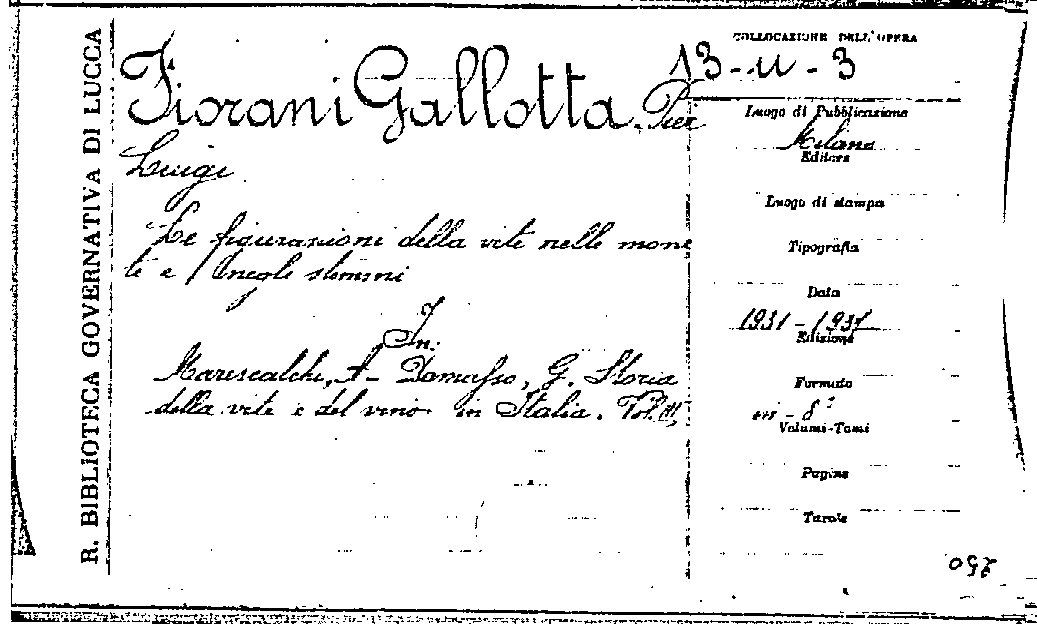 R. BIBLIOTECA GOVERNATIVA DI LUCCA
Fiorani Gallotta. Pier
Luigi
Le figurazioni della vite nelle mone
te e negli stemmi
In:
Marescalchi, A. - Dalmasso, G. Storia
della vite e del vino in Italia. Vol. III
COLLOCAZIONE DELL'OPERA
13-U-3
Luogo di Pubblicazione
Milano
Editore
Luogo di stampa
Tipografia
Data
1931-1937
Edizione
Formato
in-8°
Volumi-Tomi
Pagine
Tavole